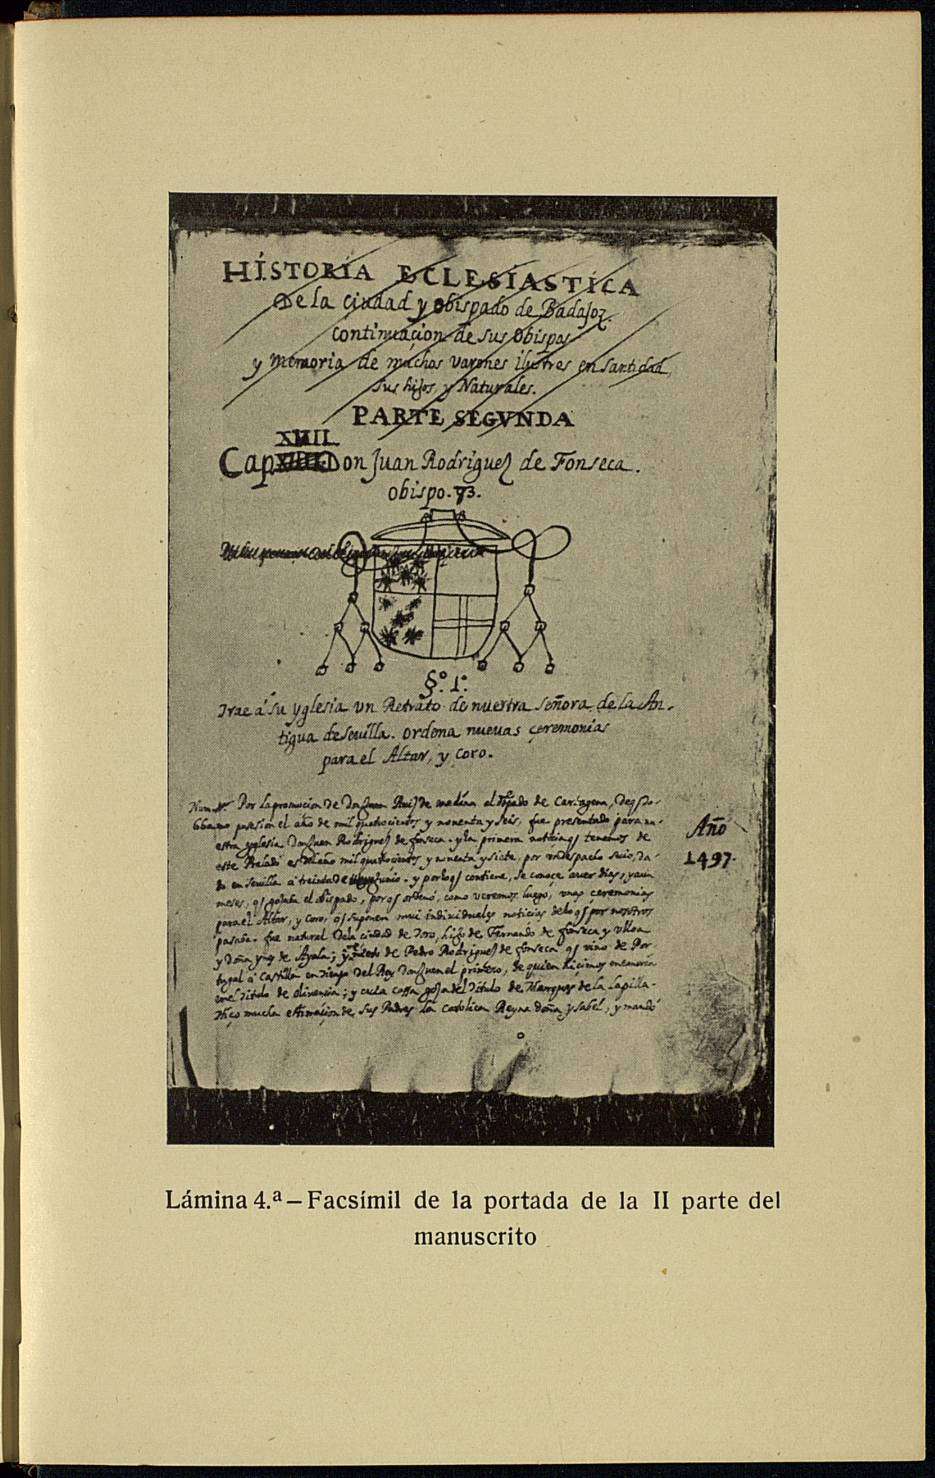 HISTORIA ECLESIASTICA
De la ciudad y obispado de Badajoz
continuacion de sus Obispos
y memoria de muchos varones ilustres en santidad
sus hijos y Naturales.
PARTE SEGVNDA
XIIII
Cap Don Juan Rodriguez de Fonseca.
obispo. 73.
§.º 1.º
Trae a su yglesia vn Retrato de nuestra señora de la An-
tigua de sevilla. ordena nuevas ceremonias
para el Altar, y coro.
Por la promocion de Don Juan Ruiz de medina al de Cartagena,
posesion el año de mil quatrocientos y nonenta y seis, que presentado para nu-
estra yglesia Don Juan Rodriguez de fonseca. y la primera tenemos de
este Prelado es del año mil quatrocientos y nonenta y siete, por vn despacho suio, da-
do en Sevilla a treinta de junio. y por lo q̃ contiene, se conoce aver dias, y aun
meses, q̃ gozaba el obispado, por q̃ ordenó, como veremos luego, vnas ceremonias
para el Altar, y coro, q̃ suponen mui individuales noticias de lo q̃ por nosotros
pasaba. fue natural de la ciudad de Toro, hijo de Fernando de fonseca y vlloa
y Doña de Ayala; y nieto de Pedro Rodriguez de fonseca q̃ vino de Por
tugal a Castilla en tiempo del Rey Don Juan el primero, de quien hicimos memoria
en el titulo de olivencia; y esta cassa goza del titulo de Marques de la Lapilla.
Hiço mucha estimacion de sus Padres la Catolica Reyna doña ysabel, y mandó
Año
1497.
Lámina 4.ª – Facsímil de la portada de la II parte del
manuscrito